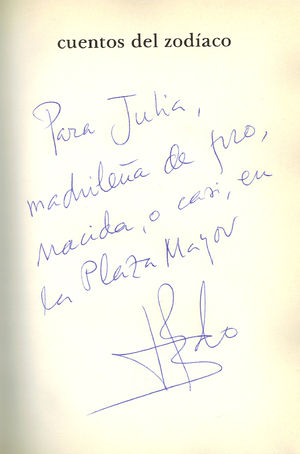 cuentos del zodíaco
Para Julia,
madrileña de pro,
nacida, o casi, en
la Plaza Mayor